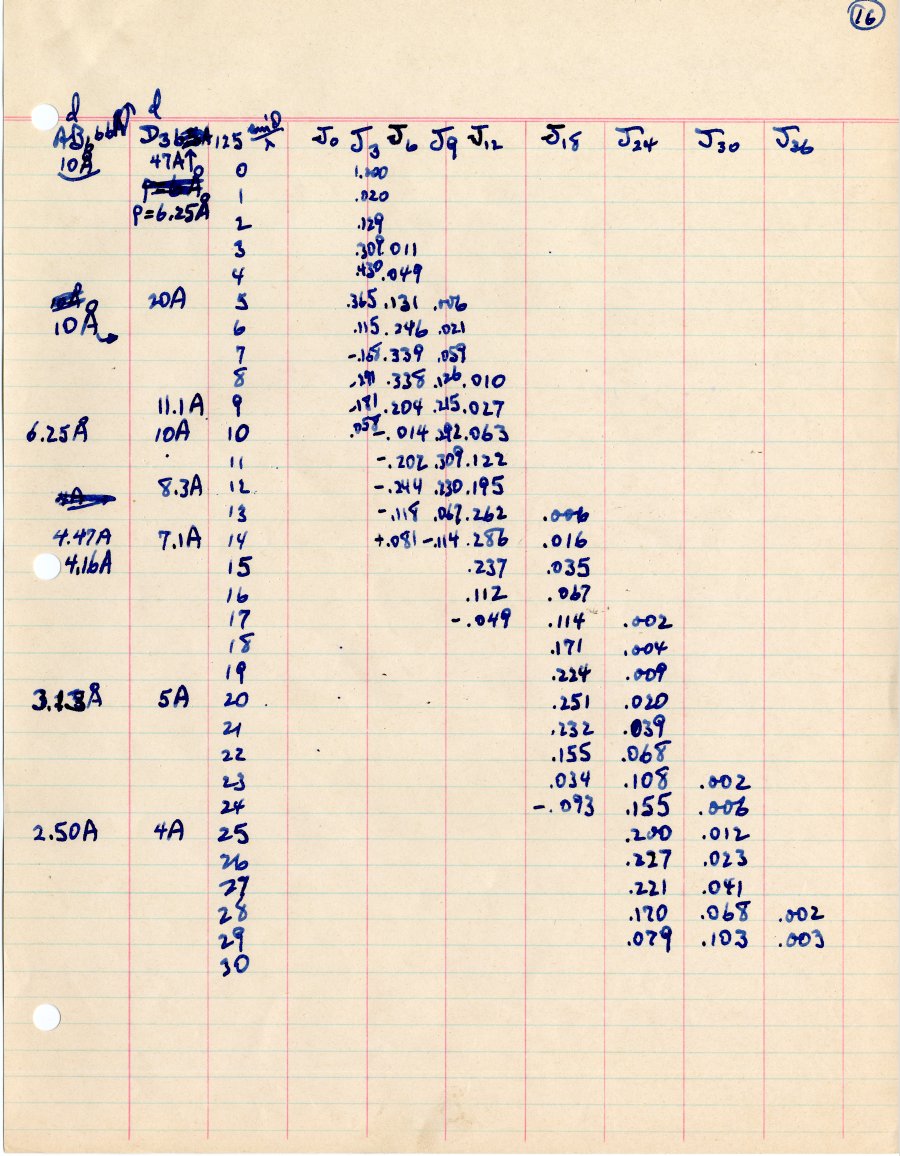 16
d d
AB6 66A D3 6 A 125 sinθ/λ J0 J3 J6 J9 J12 J18 J24 J30 J36
10Å 47A↑ 0 1.000
ρ=6.25Å 1 .020
2 .129
3 .309 .011
4 .430 .049
20A 5 .365 .131 .006
10Å 6 .115 .246 .021
7 -.168 .339 .059
8 -.291 .338 .126 .010
11.1A 9 -.181 .204 .215 .027
6.25Å 10A 10 .058 -.014 .292 .063
11 -.202 .309 .122
8.3A 12 -.244 .230 .195
13 -.118 .067 .262 .006
4.47A 7.1A 14 +.081 -.114 .286 .016
4.16A 15 .237 .035
16 .112 .067
17 -.049 .114 .002
18 .171 .004
19 .224 .009
3.13Å 5A 20 .251 .020
21 .232 .039
22 .155 .068
23 .034 .108 .002
24 -.093 .155 .006
2.50A 4A 25 .200 .012
26 .227 .023
27 .221 .041
28 .170 .068 .002
29 .079 .103 .003
30